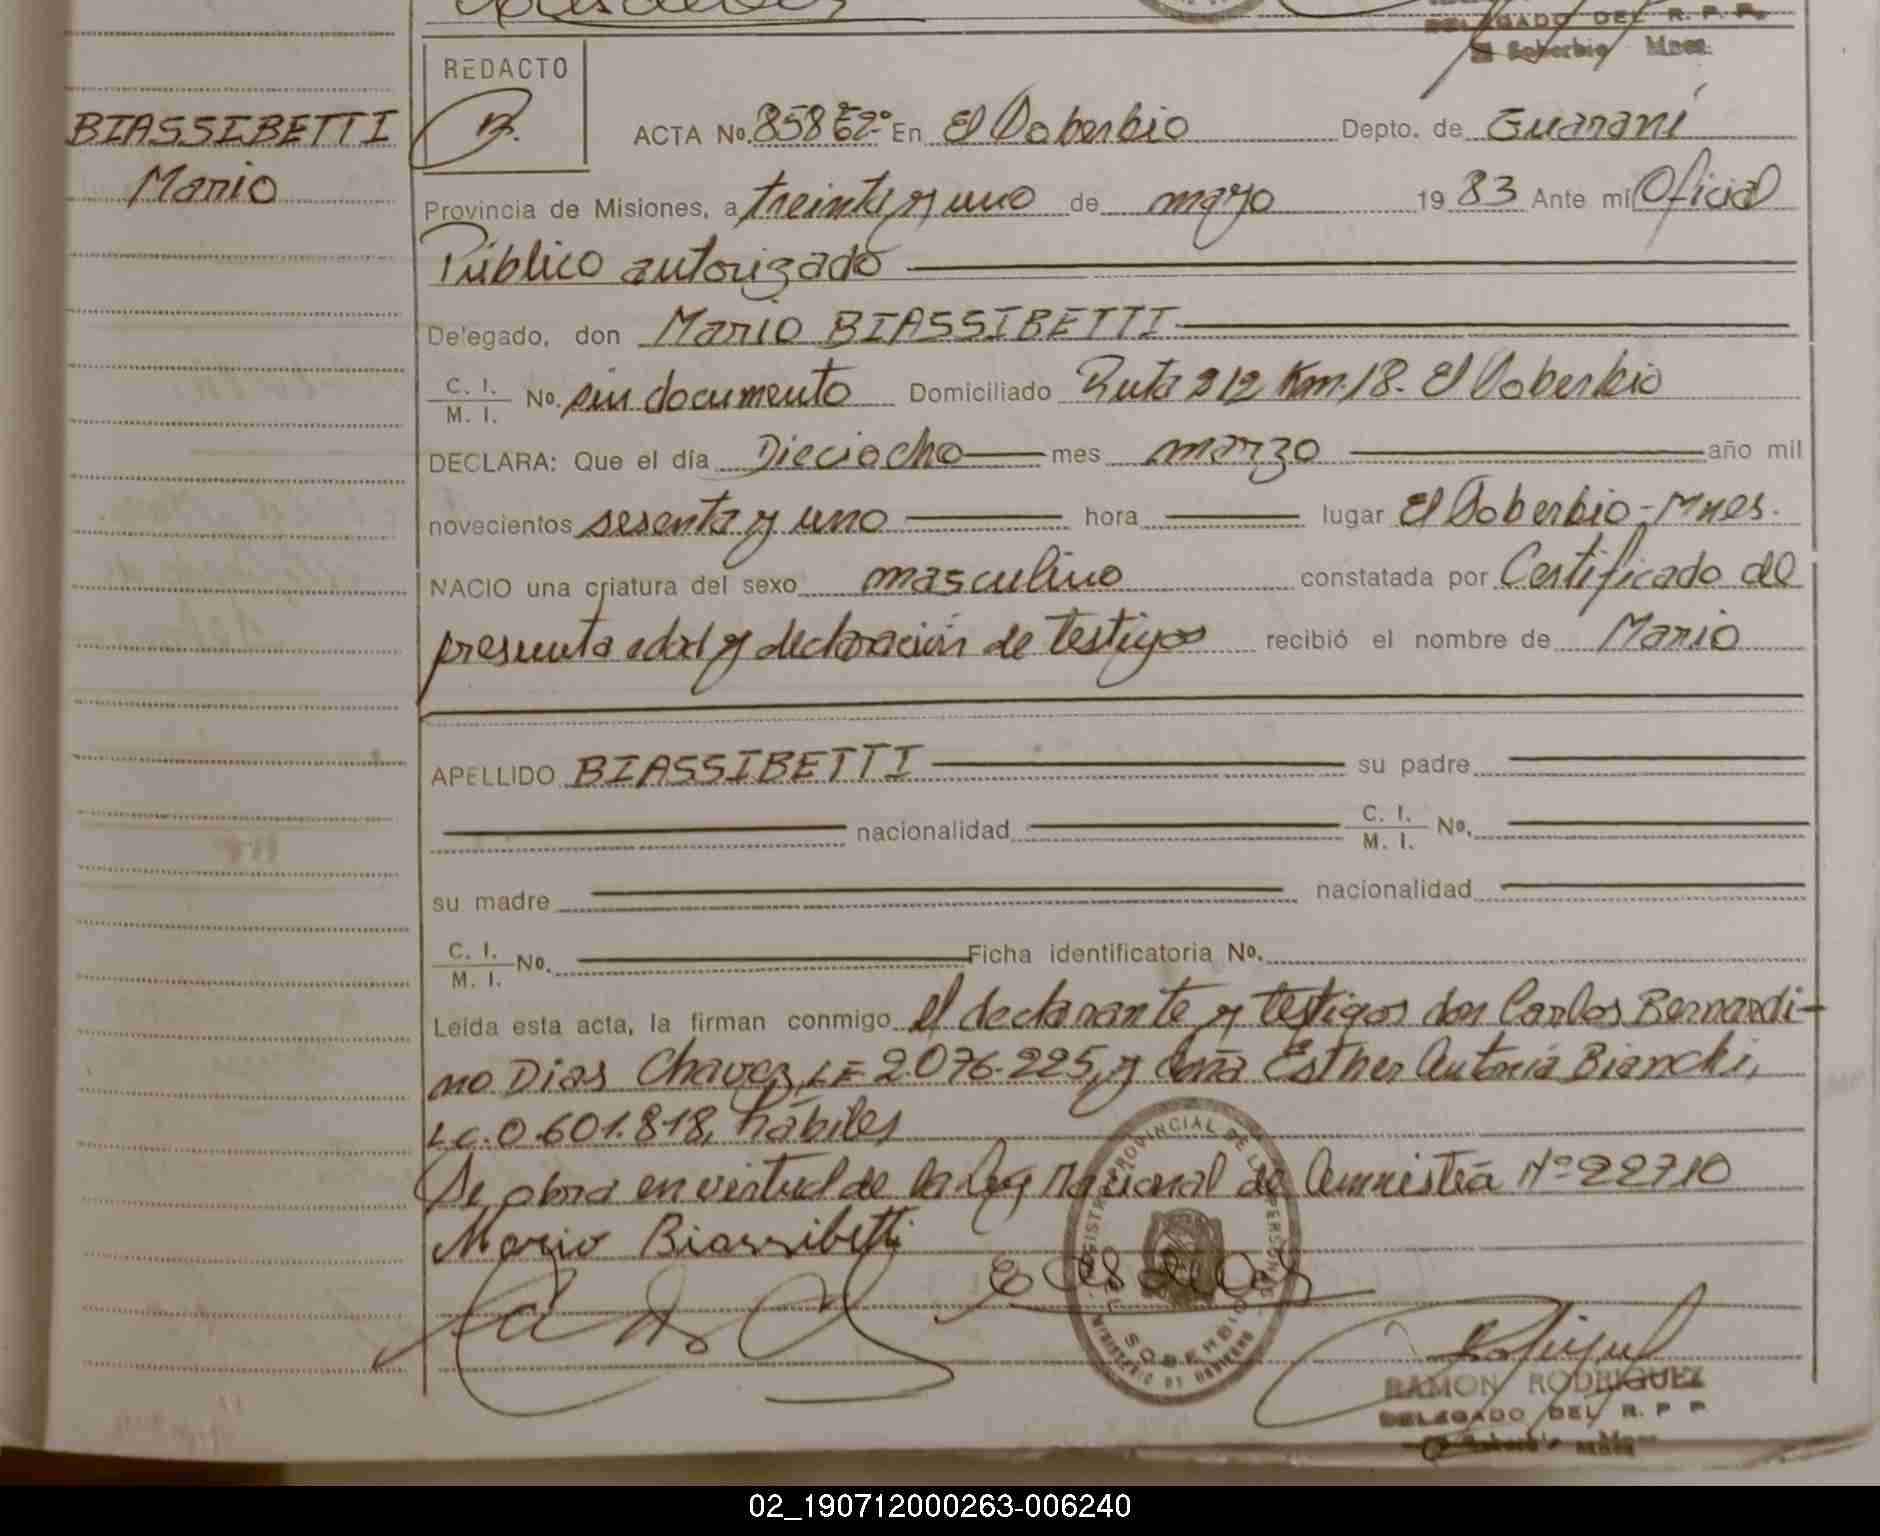 DELEGADO DEL R. P. P.
El Soberbio Mnes.
BIASSIBETTI
Mario
REDACTO
B.
ACTA No. 858 Eº2º En El Soberbio Depto. de Guaraní
Provincia de Misiones, a treinta y uno de mayo 1983 Ante mi Oficial
Público autorizado
Delegado, don Mario BIASSIBETTI
C. I.
M. I. No. sin documento Domiciliado Ruta 212 Km. 18. El Soberbio
DECLARA: Que el día Dieciocho mes marzo año mil
novecientos sesenta y uno hora lugar El Soberbio - Mnes.
NACIO una criatura del sexo masculino constatada por Certificado de
presunta edad y declaración de testigos recibió el nombre de Mario
APELLIDO BIASSIBETTI su padre
nacionalidad C. I. M. I. No.
su madre nacionalidad
C. I. M. I. No. Ficha identificatoria No.
Leída esta acta, la firman conmigo el declarante y testigos don Carlos Bernardi-
no Dias Chavez, LE 2.076.225, y doña Esther Antonia Bianchi,
L.C. 0.601.818, hábiles
Se obra en virtud de la Ley Nacional de Amnistía Nº 22710
Mario Biassibetti
REGISTRO PROVINCIAL DE LAS PERSONAS
EL SOBERBIO
MINISTERIO DE GOBIERNO
RAMON RODRIGUEZ
DELEGADO DEL R. P P
El Soberbio Mnes
02_190712000263-006240